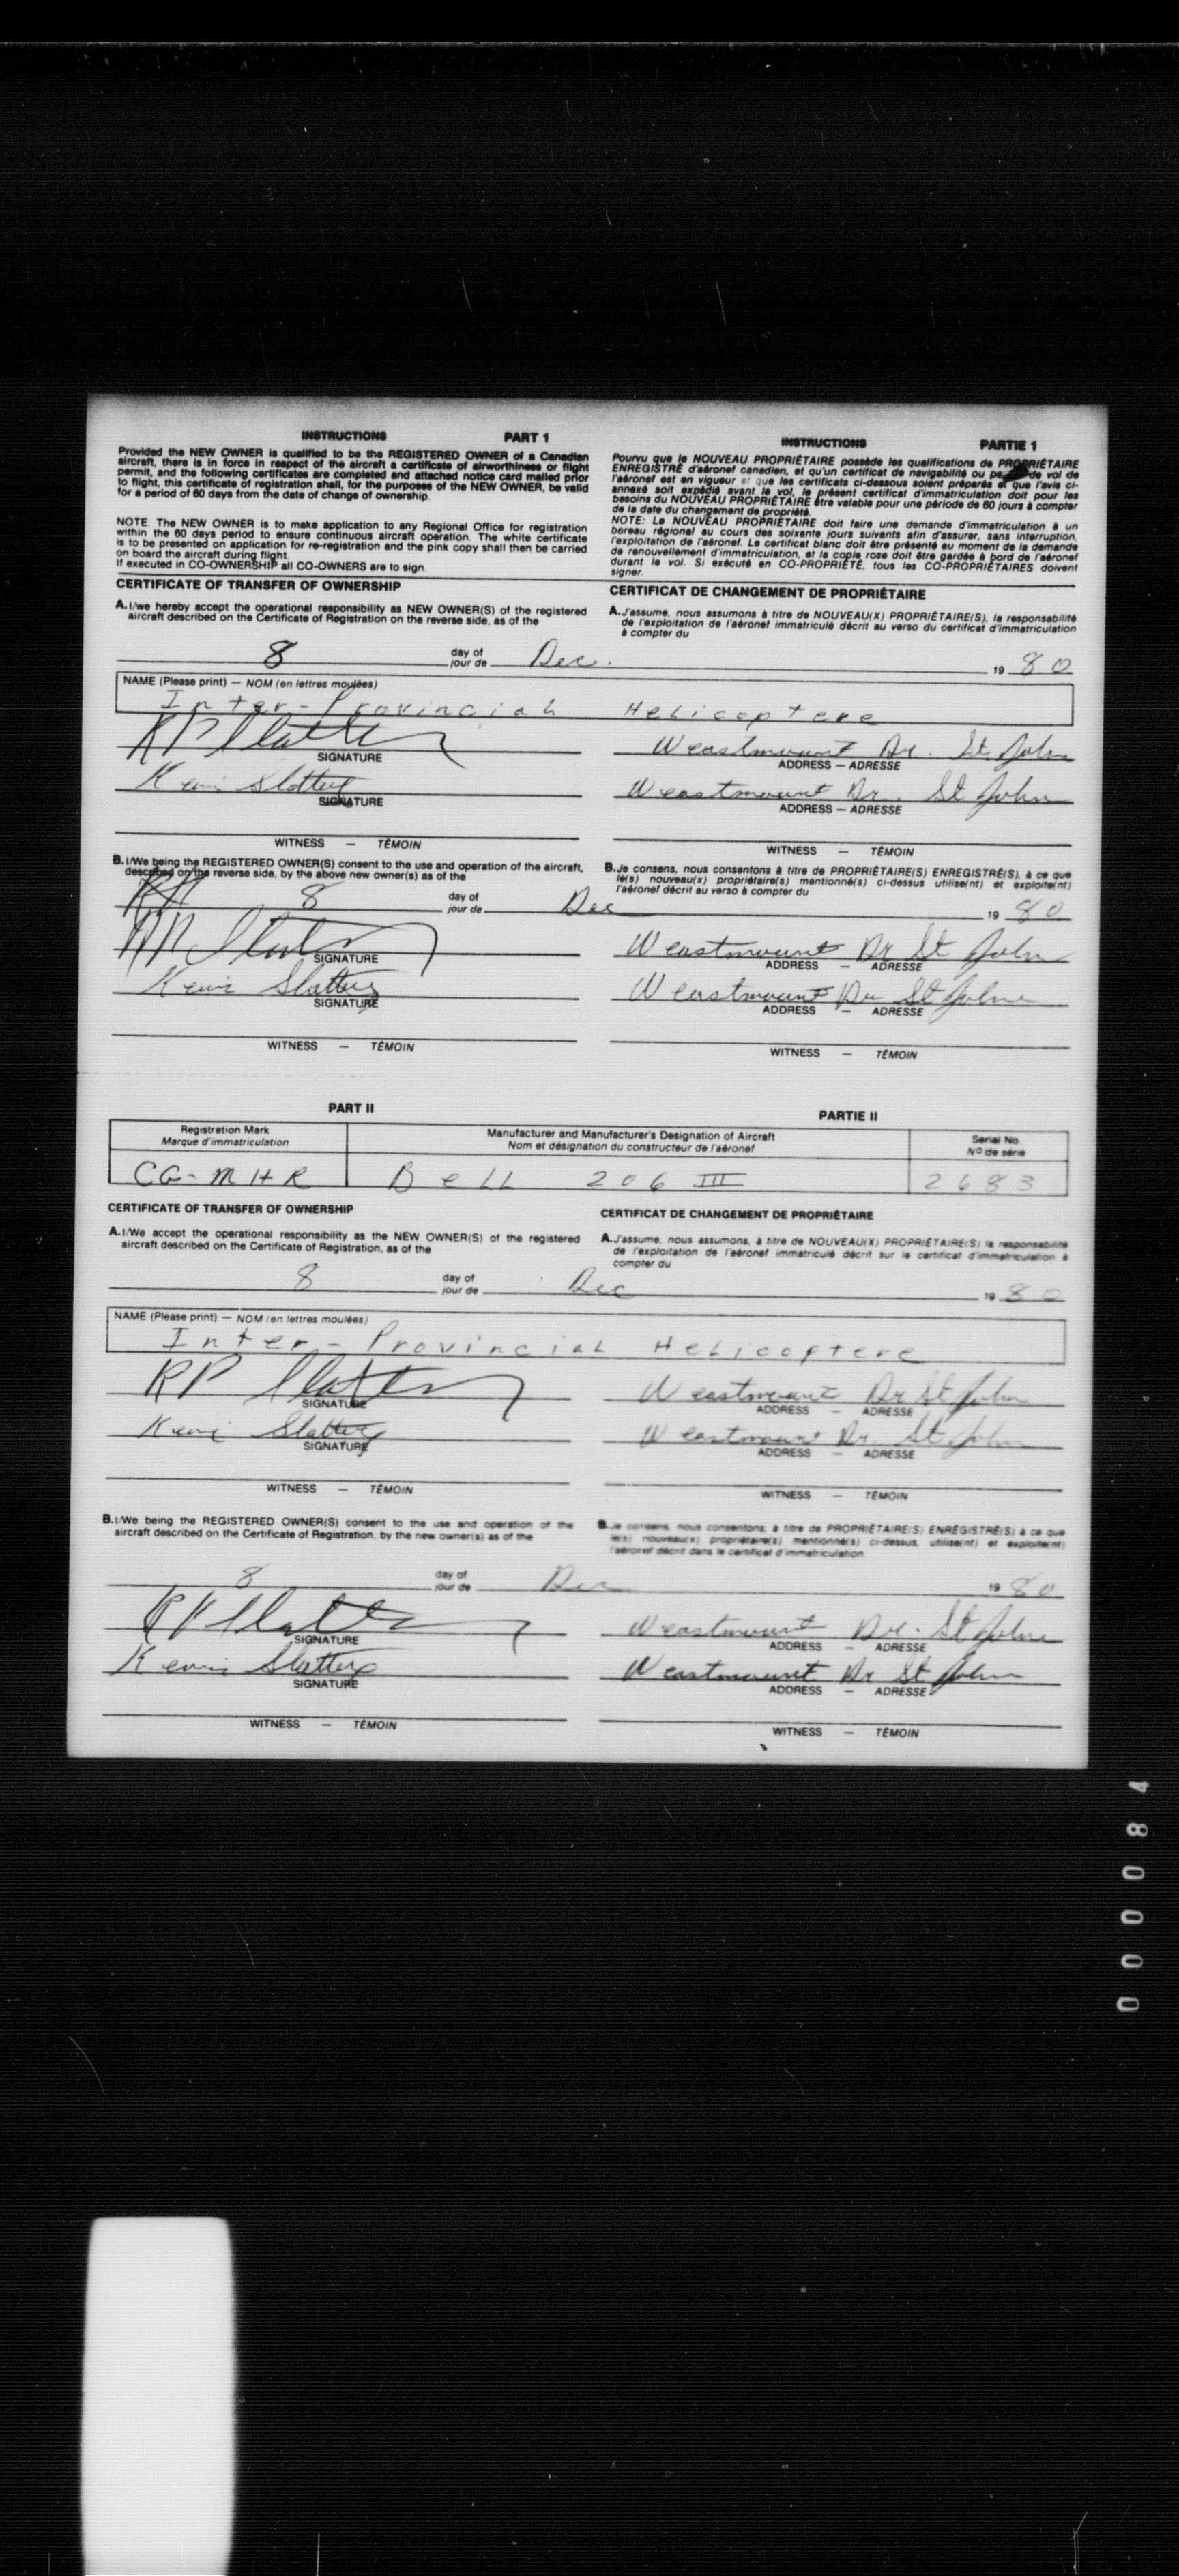 INSTRUCTIONS PART 1
Provided the NEW OWNER is qualified to be the REGISTERED OWNER of a Canadian
aircraft, there is in force in respect of the aircraft a certificate of airworthiness or flight
permit, and the following certificates are completed and attached notice card mailed prior
to flight, this certificate of registration shall, for the purposes of the NEW OWNER, be valid
for a period of 60 days from the date of change of ownership.
NOTE: The NEW OWNER is to make application to any Regional Office for registration
within the 60 days period to ensure continuous aircraft operation. The white certificate
is to be presented on application for re-registration and the pink copy shall then be carried
on board the aircraft during flight.
If executed in CO-OWNERSHIP all CO-OWNERS are to sign.
INSTRUCTIONS PARTIE 1
Pourvu que le NOUVEAU PROPRIÉTAIRE possède les qualifications de PROPRIÉTAIRE
ENREGISTRÉ d'aéronef canadien, et qu'un certificat de navigabilité ou de vol de
l'aéronef est en vigueur et que les certificats ci-dessous soient préparés et que l'avis ci-
annexé soit expédié avant le vol, le présent certificat d'immatriculation doit pour les
besoins du NOUVEAU PROPRIÉTAIRE être valable pour une période de 60 jours à compter
de la date du changement de propriété.
NOTE: Le NOUVEAU PROPRIÉTAIRE doit faire une demande d'immatriculation à un
bureau régional au cours des soixante jours suivants afin d'assurer, sans interruption,
l'exploitation de l'aéronef. Le certificat blanc doit être présenté au moment de la demande
de renouvellement d'immatriculation, et la copie rose doit être gardée à bord de l'aéronef
durant le vol. Si exécuté en CO-PROPRIÉTÉ, tous les CO-PROPRIÉTAIRES doivent
signer.
CERTIFICATE OF TRANSFER OF OWNERSHIP
CERTIFICAT DE CHANGEMENT DE PROPRIÉTAIRE
A. I/we hereby accept the operational responsibility as NEW OWNER(S) of the registered
aircraft described on the Certificate of Registration on the reverse side, as of the
A. J'assume, nous assumons à titre de NOUVEAU(X) PROPRIÉTAIRE(S), la responsabilité
de l'exploitation de l'aéronef immatriculé décrit au verso du certificat d'immatriculation
à compter du
8 day of Dec. 19 80
jour de
NAME (Please print) — NOM (en lettres moulées)
Inter-Provincial Helicoptere
RP Slattery Weastmount Dr. St. John
SIGNATURE ADDRESS — ADRESSE
Kevin Slattery Weastmount Dr. St John
SIGNATURE ADDRESS — ADRESSE
WITNESS — TÉMOIN WITNESS — TÉMOIN
B. I/We being the REGISTERED OWNER(S) consent to the use and operation of the aircraft,
described on the reverse side, by the above new owner(s) as of the
B. Je consens, nous consentons à titre de PROPRIÉTAIRE(S) ENREGISTRÉ(S), à ce que
le(s) nouveau(x) propriétaire(s) mentionné(s) ci-dessus utilise(nt) et exploite(nt)
l'aéronef décrit au verso à compter du
8 day of Dec 19 80
jour de
Slattery Weastmount Dr St John
SIGNATURE ADDRESS — ADRESSE
Kevin Slattery Weastmount Dr St John
SIGNATURE ADDRESS — ADRESSE
WITNESS — TÉMOIN WITNESS — TÉMOIN
PART II PARTIE II
Registration Mark Manufacturer and Manufacturer's Designation of Aircraft Serial No.
Marque d'immatriculation Nom et désignation du constructeur de l'aéronef Nº de série
CG-MHR Bell 206 III 2683
CERTIFICATE OF TRANSFER OF OWNERSHIP
CERTIFICAT DE CHANGEMENT DE PROPRIÉTAIRE
A. I/We accept the operational responsibility as the NEW OWNER(S) of the registered
aircraft described on the Certificate of Registration, as of the
A. J'assume, nous assumons, à titre de NOUVEAU(X) PROPRIÉTAIRE(S) la responsabilité
de l'exploitation de l'aéronef immatriculé décrit sur le certificat d'immatriculation à
compter du
8 day of Dec 19 80
jour de
NAME (Please print) — NOM (en lettres moulées)
Inter-Provincial Helicoptere
RP Slattery Weastmount Dr St John
SIGNATURE ADDRESS — ADRESSE
Kevin Slattery Weastmount Dr. St John
SIGNATURE ADDRESS — ADRESSE
WITNESS — TÉMOIN WITNESS — TÉMOIN
B. I/We being the REGISTERED OWNER(S) consent to the use and operation of the
aircraft described on the Certificate of Registration, by the new owner(s) as of the
B. Je consens, nous consentons, à titre de PROPRIÉTAIRE(S) ENREGISTRÉ(S) à ce que
le(s) nouveau(x) propriétaire(s) mentionné(s) ci-dessus, utilise(nt) et exploite(nt)
l'aéronef décrit dans le certificat d'immatriculation.
8 day of Dec 19 80
jour de
RP Slattery Weastmount Dr. St John
SIGNATURE ADDRESS — ADRESSE
Kevin Slattery Weastmount Dr St John
SIGNATURE ADDRESS — ADRESSE
WITNESS — TÉMOIN WITNESS — TÉMOIN
000084